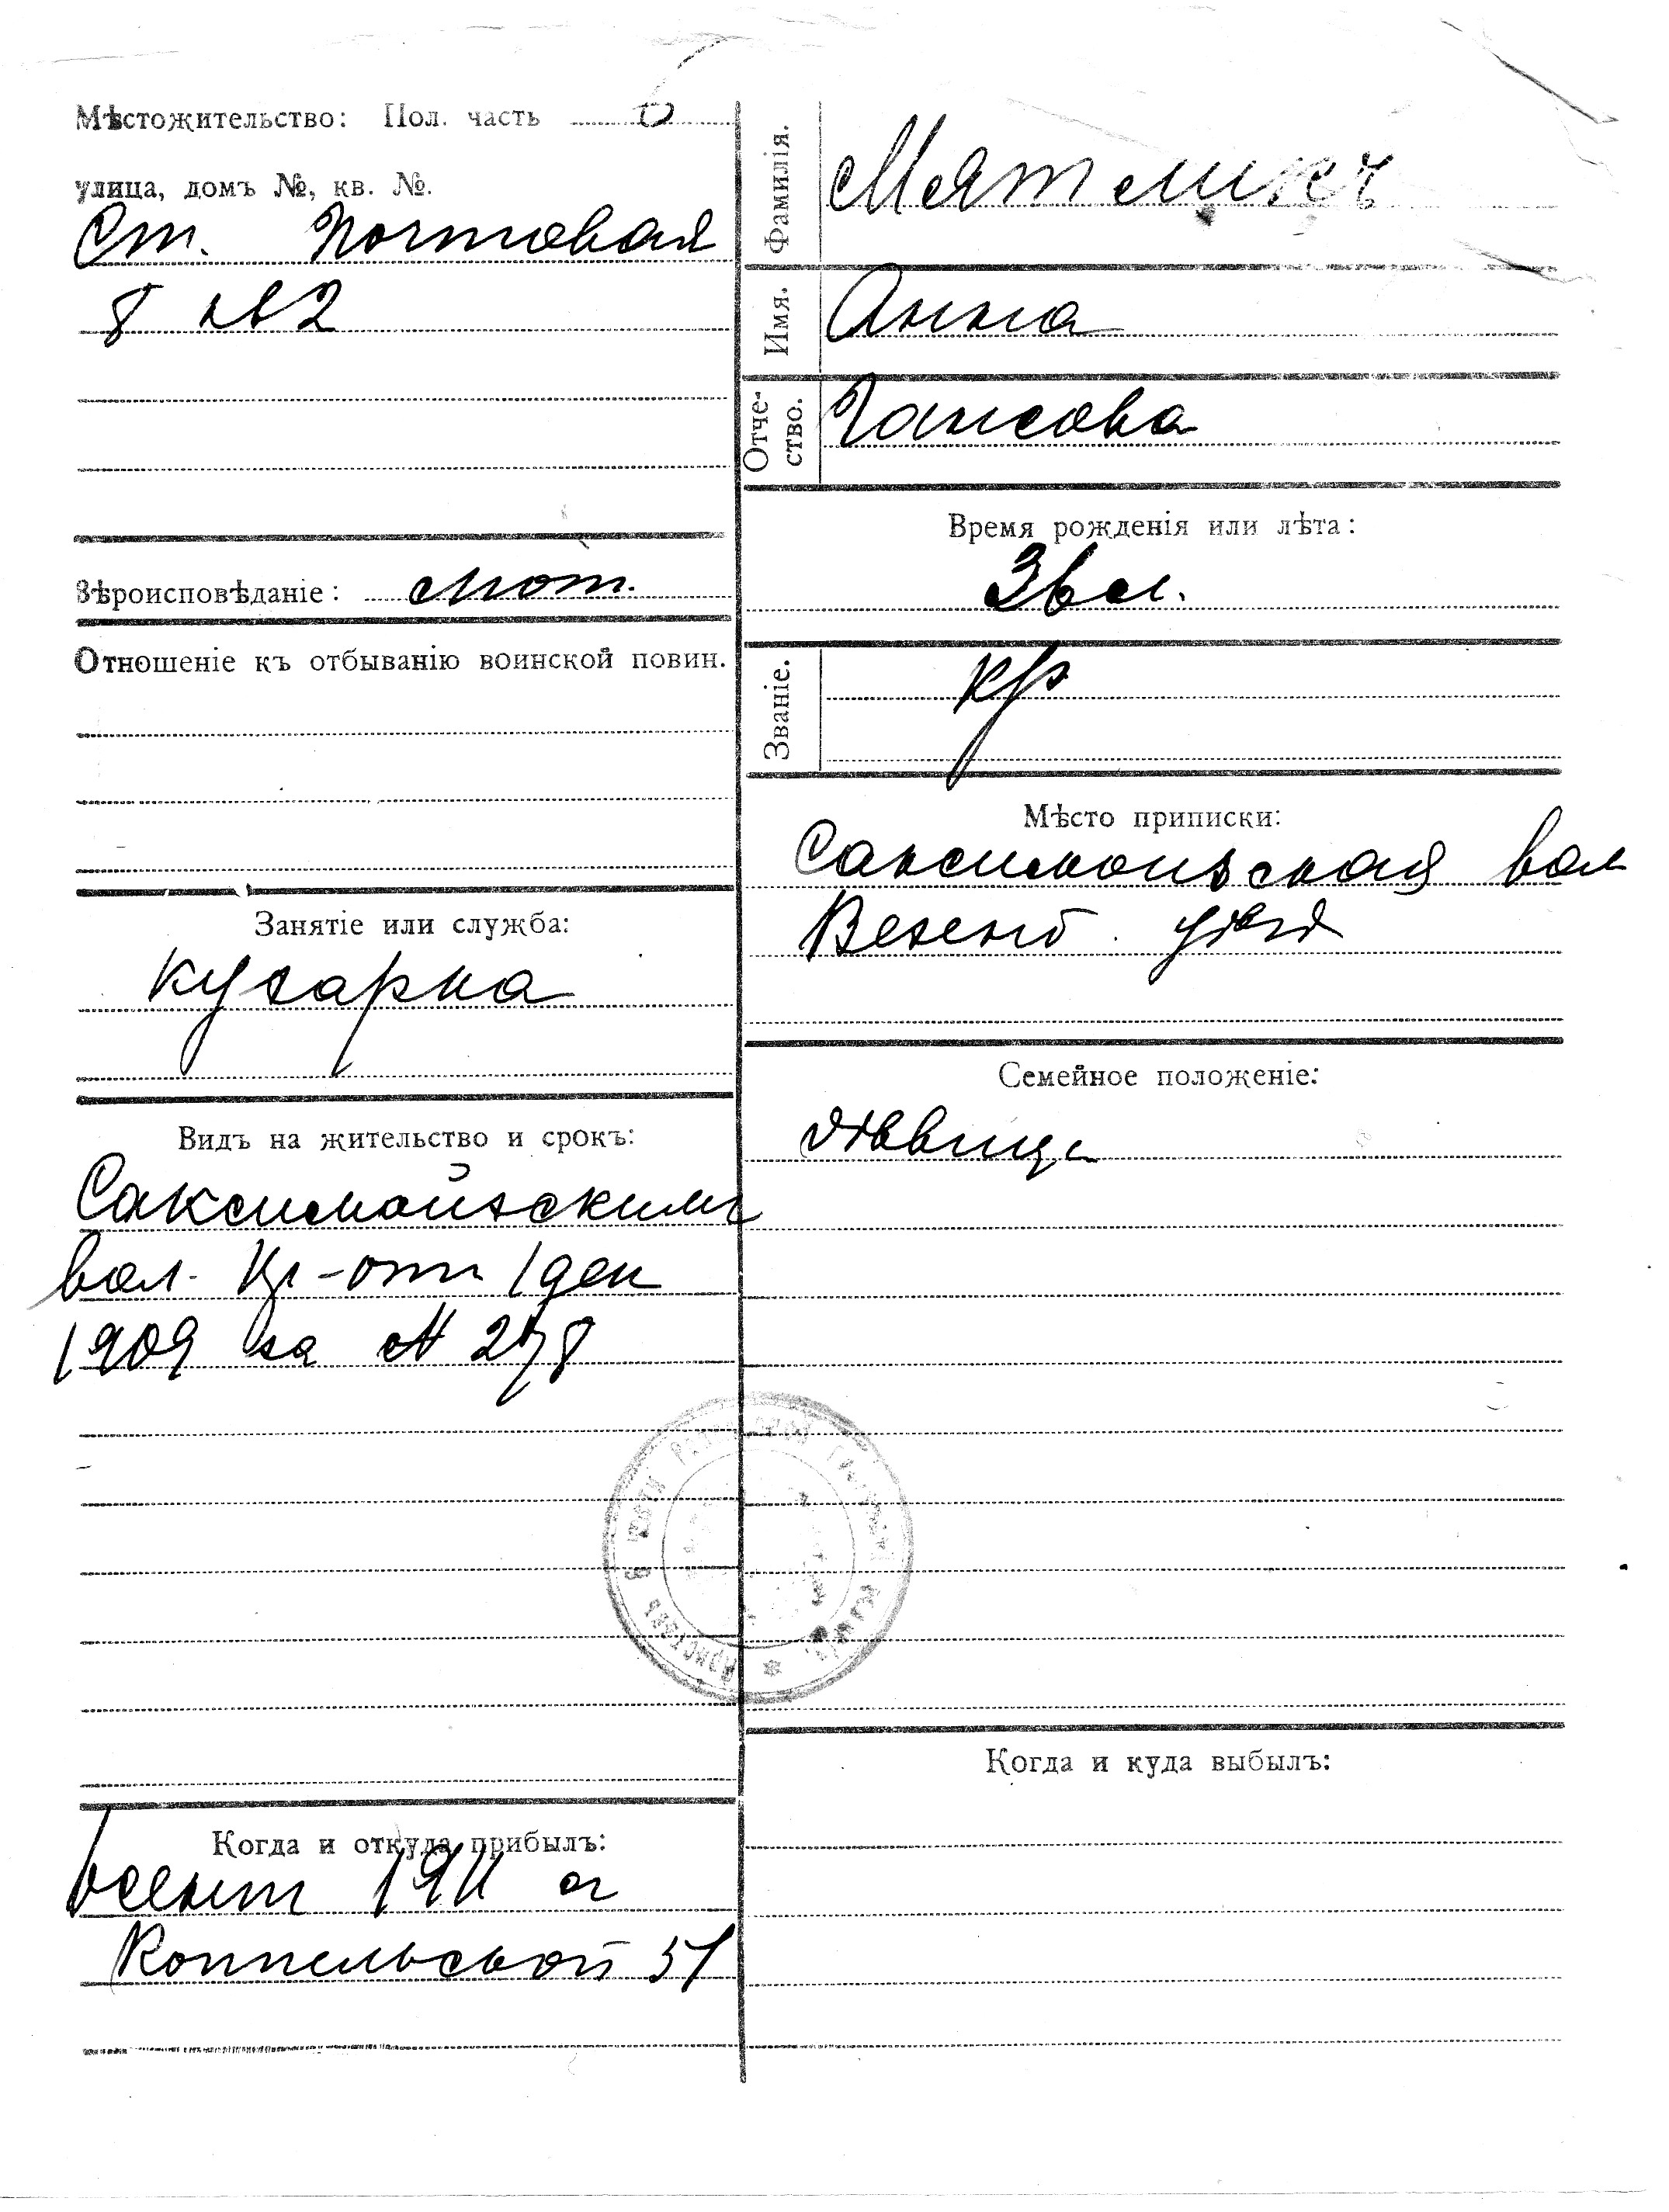 Мѣстожительство: Пол. часть
улица, домъ №, кв. №.
Ст. Почтовая
8 кв 2
Вѣроисповѣданіе: лют.
Отношеніе къ отбыванію воинской повин.
Занятіе или служба:
кухарка
Видъ на жительство и срокъ:
Саксимойзскимъ
вол. пр-отъ 1 дек
1909 за № 278
Когда и откуда прибылъ:
1911 съ
Коппельской 51
Фамилія. Мятликъ
Имя. Анна
Отчество. Гансова
Время рожденія или лѣта:
36 л.
Званіе. кр
Мѣсто приписки:
Саксимойзская вол
Везенб. уѣзд
Семейное положеніе:
дѣвица
Когда и куда выбылъ:
Приставъ 6 части